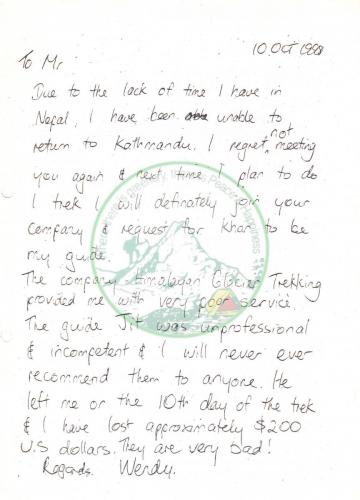 10 Oct 1998
To Mr
Due to the lack of time I have in
Nepal, I have been unable to
return to Kathmandu. I regret not meeting
you again & next time I plan to do
I trek I will definately join your
Company & request for Khar to be
my guide.
The company Himalayan Glacier Trekking
provided me with very poor service.
The guide Jit was unprofessional
& incompetent & I will never ever
recommend them to anyone. He
left me or the 10th day of the trek
& I have lost approximately $200
U.S dollars. They are very bad!
Regards Wendy.
Peace Happiness